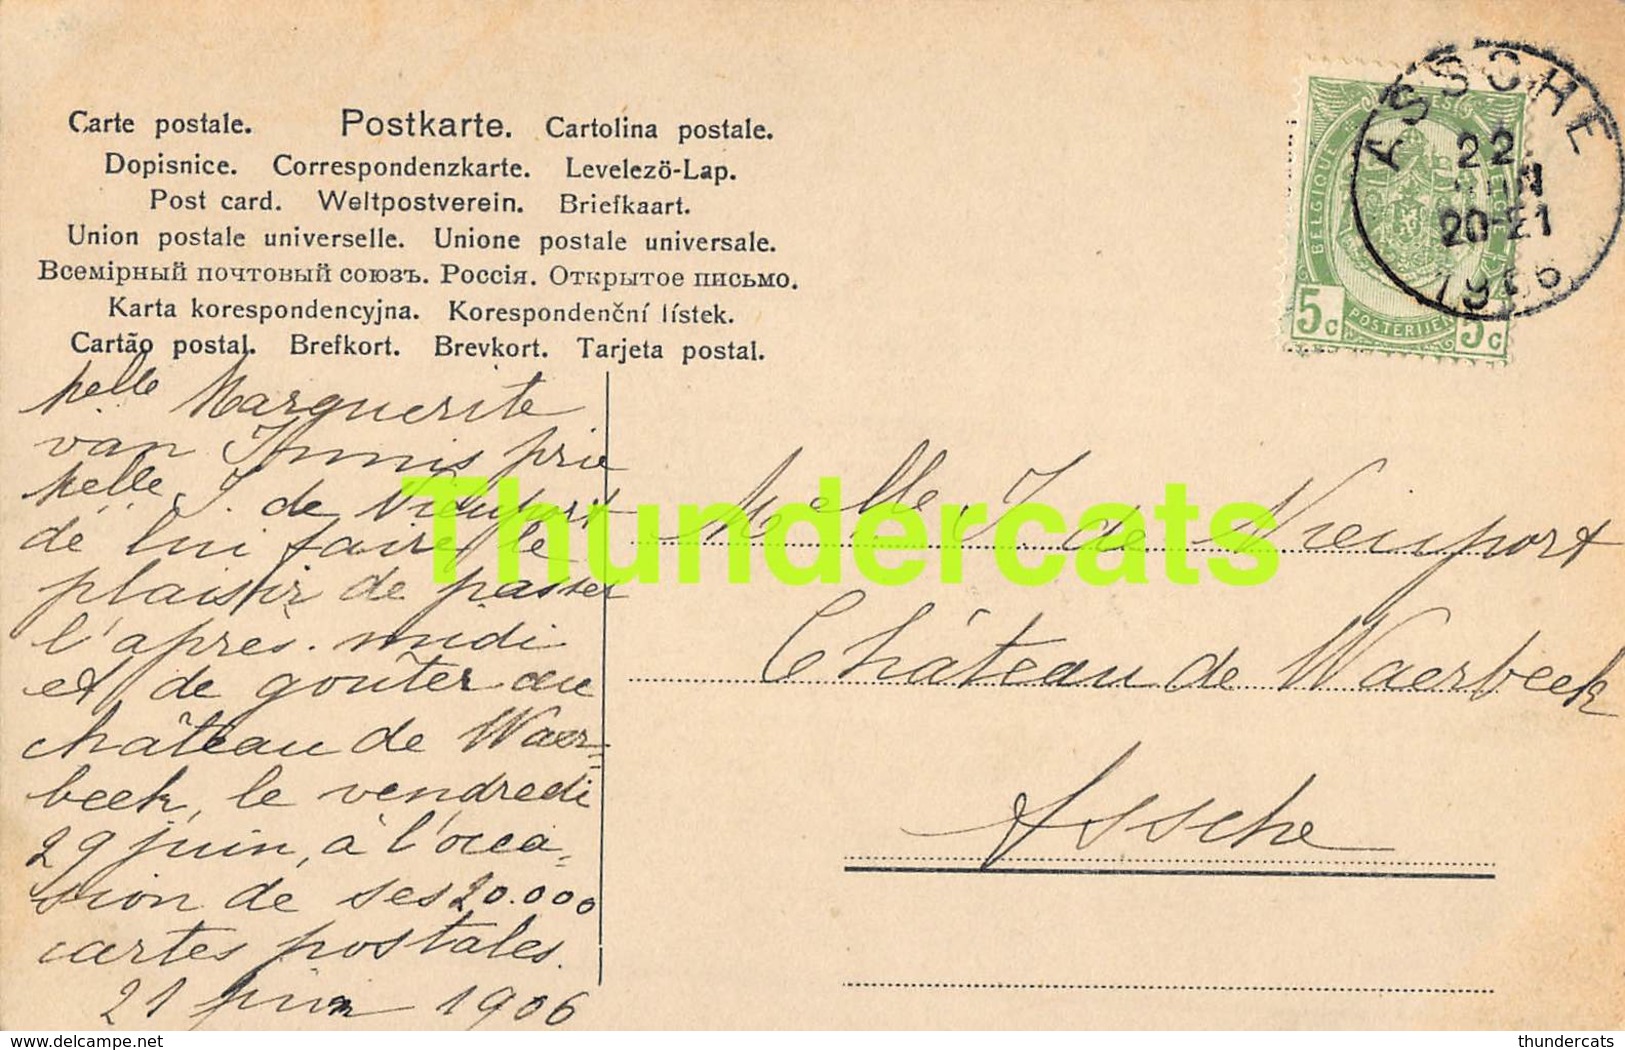 Carte postale. Postkarte. Cartolina postale.
Dopisnice. Correspondenzkarte. Levelezö-Lap.
Post card. Weltpostverein. Briefkaart.
Union postale universelle. Unione postale universale.
Всемірный почтовый союзъ. Россія. Открытое письмо.
Karta korespondencyjna. Korespondenční lístek.
Cartão postal. Brefkort. Brevkort. Tarjeta postal.
ASSCHE
22
JUIN
20-21
1906
BELGIQUE
POSTERIJEN
5c 5c
Melle Marguerite
van Innis prie
Melle J. de Nieuport
de lui faire le
plaisir de passer
l'après-midi
et de goûter au
château de Waer=
beek, le vendredi
29 juin, à l'occa=
sion de ses 20.000
cartes postales.
21 juin 1906
Melle J. de Nieuport
Château de Waerbeek
Assche
Thundercats
www.delcampe.net
thundercats